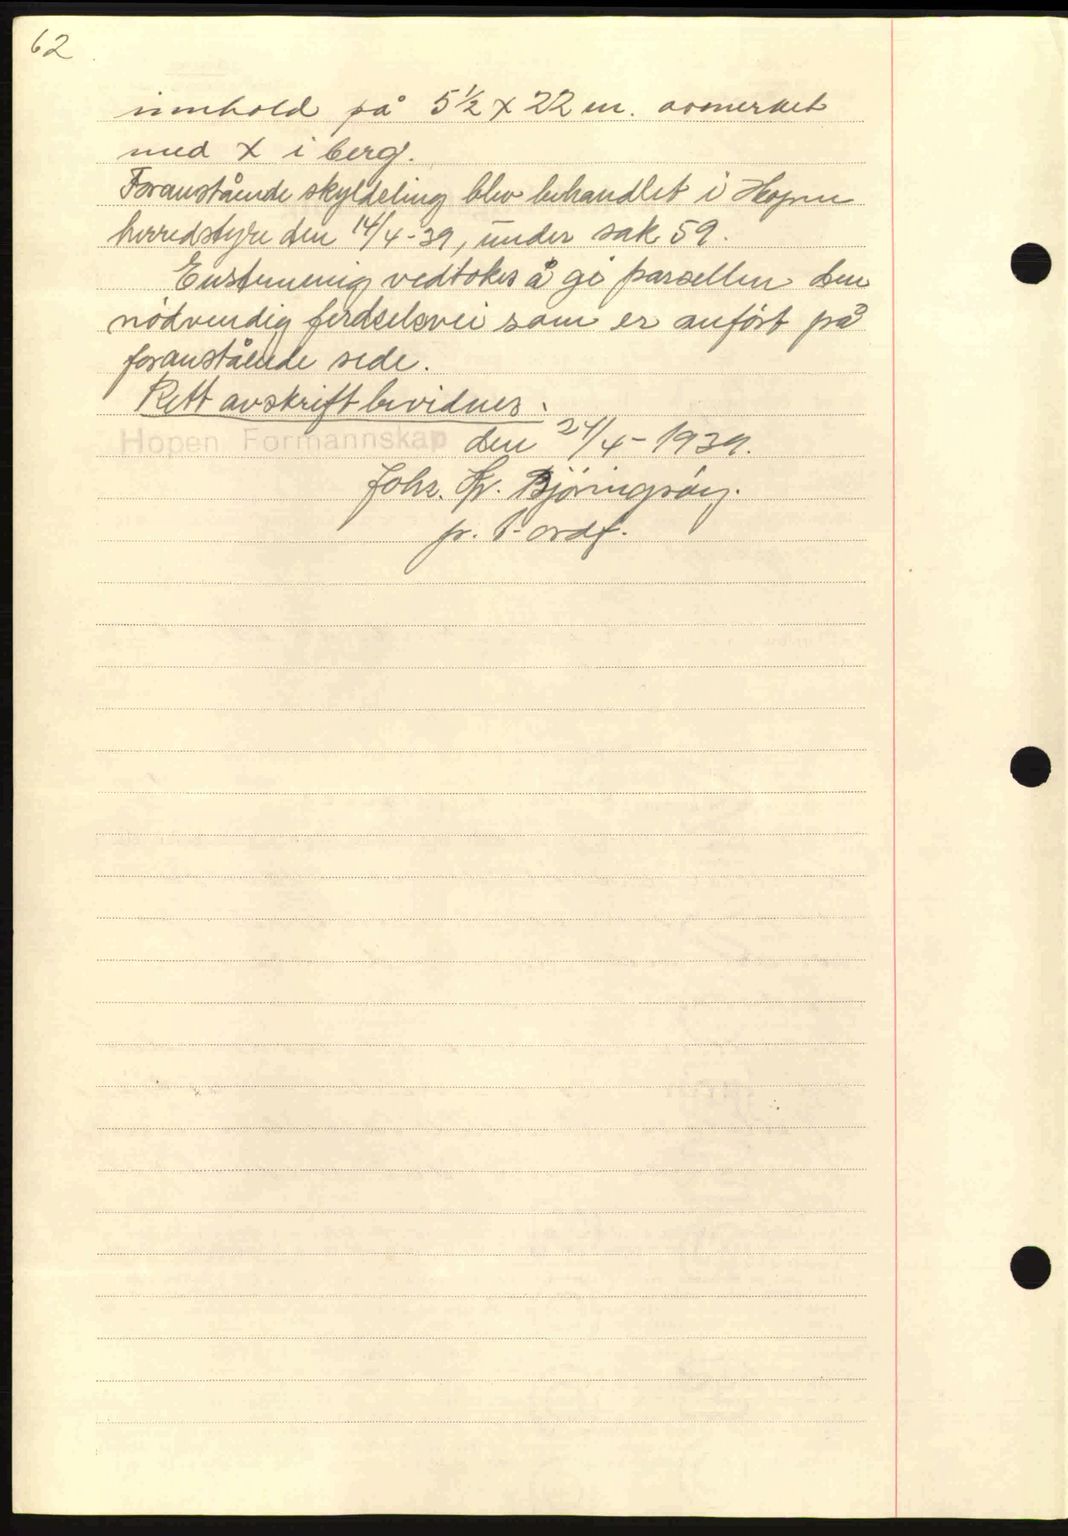 62
innhold på 5½ x 22 m. avmerket
med X i berg.
Foranstående skyldeling blev behandlet i Hopen
herredstyre den 14/4-39, under sak 59.
Enstemmig vedtokes å gi parsellen den
nödvendig ferdselsvei som er anfört på
foranstående side.
Rett avskrift bevidnes.
Hopen Formannskap
den 24/4-1939.
Johs. Kr. Björingsöy.
p. t. ordf.